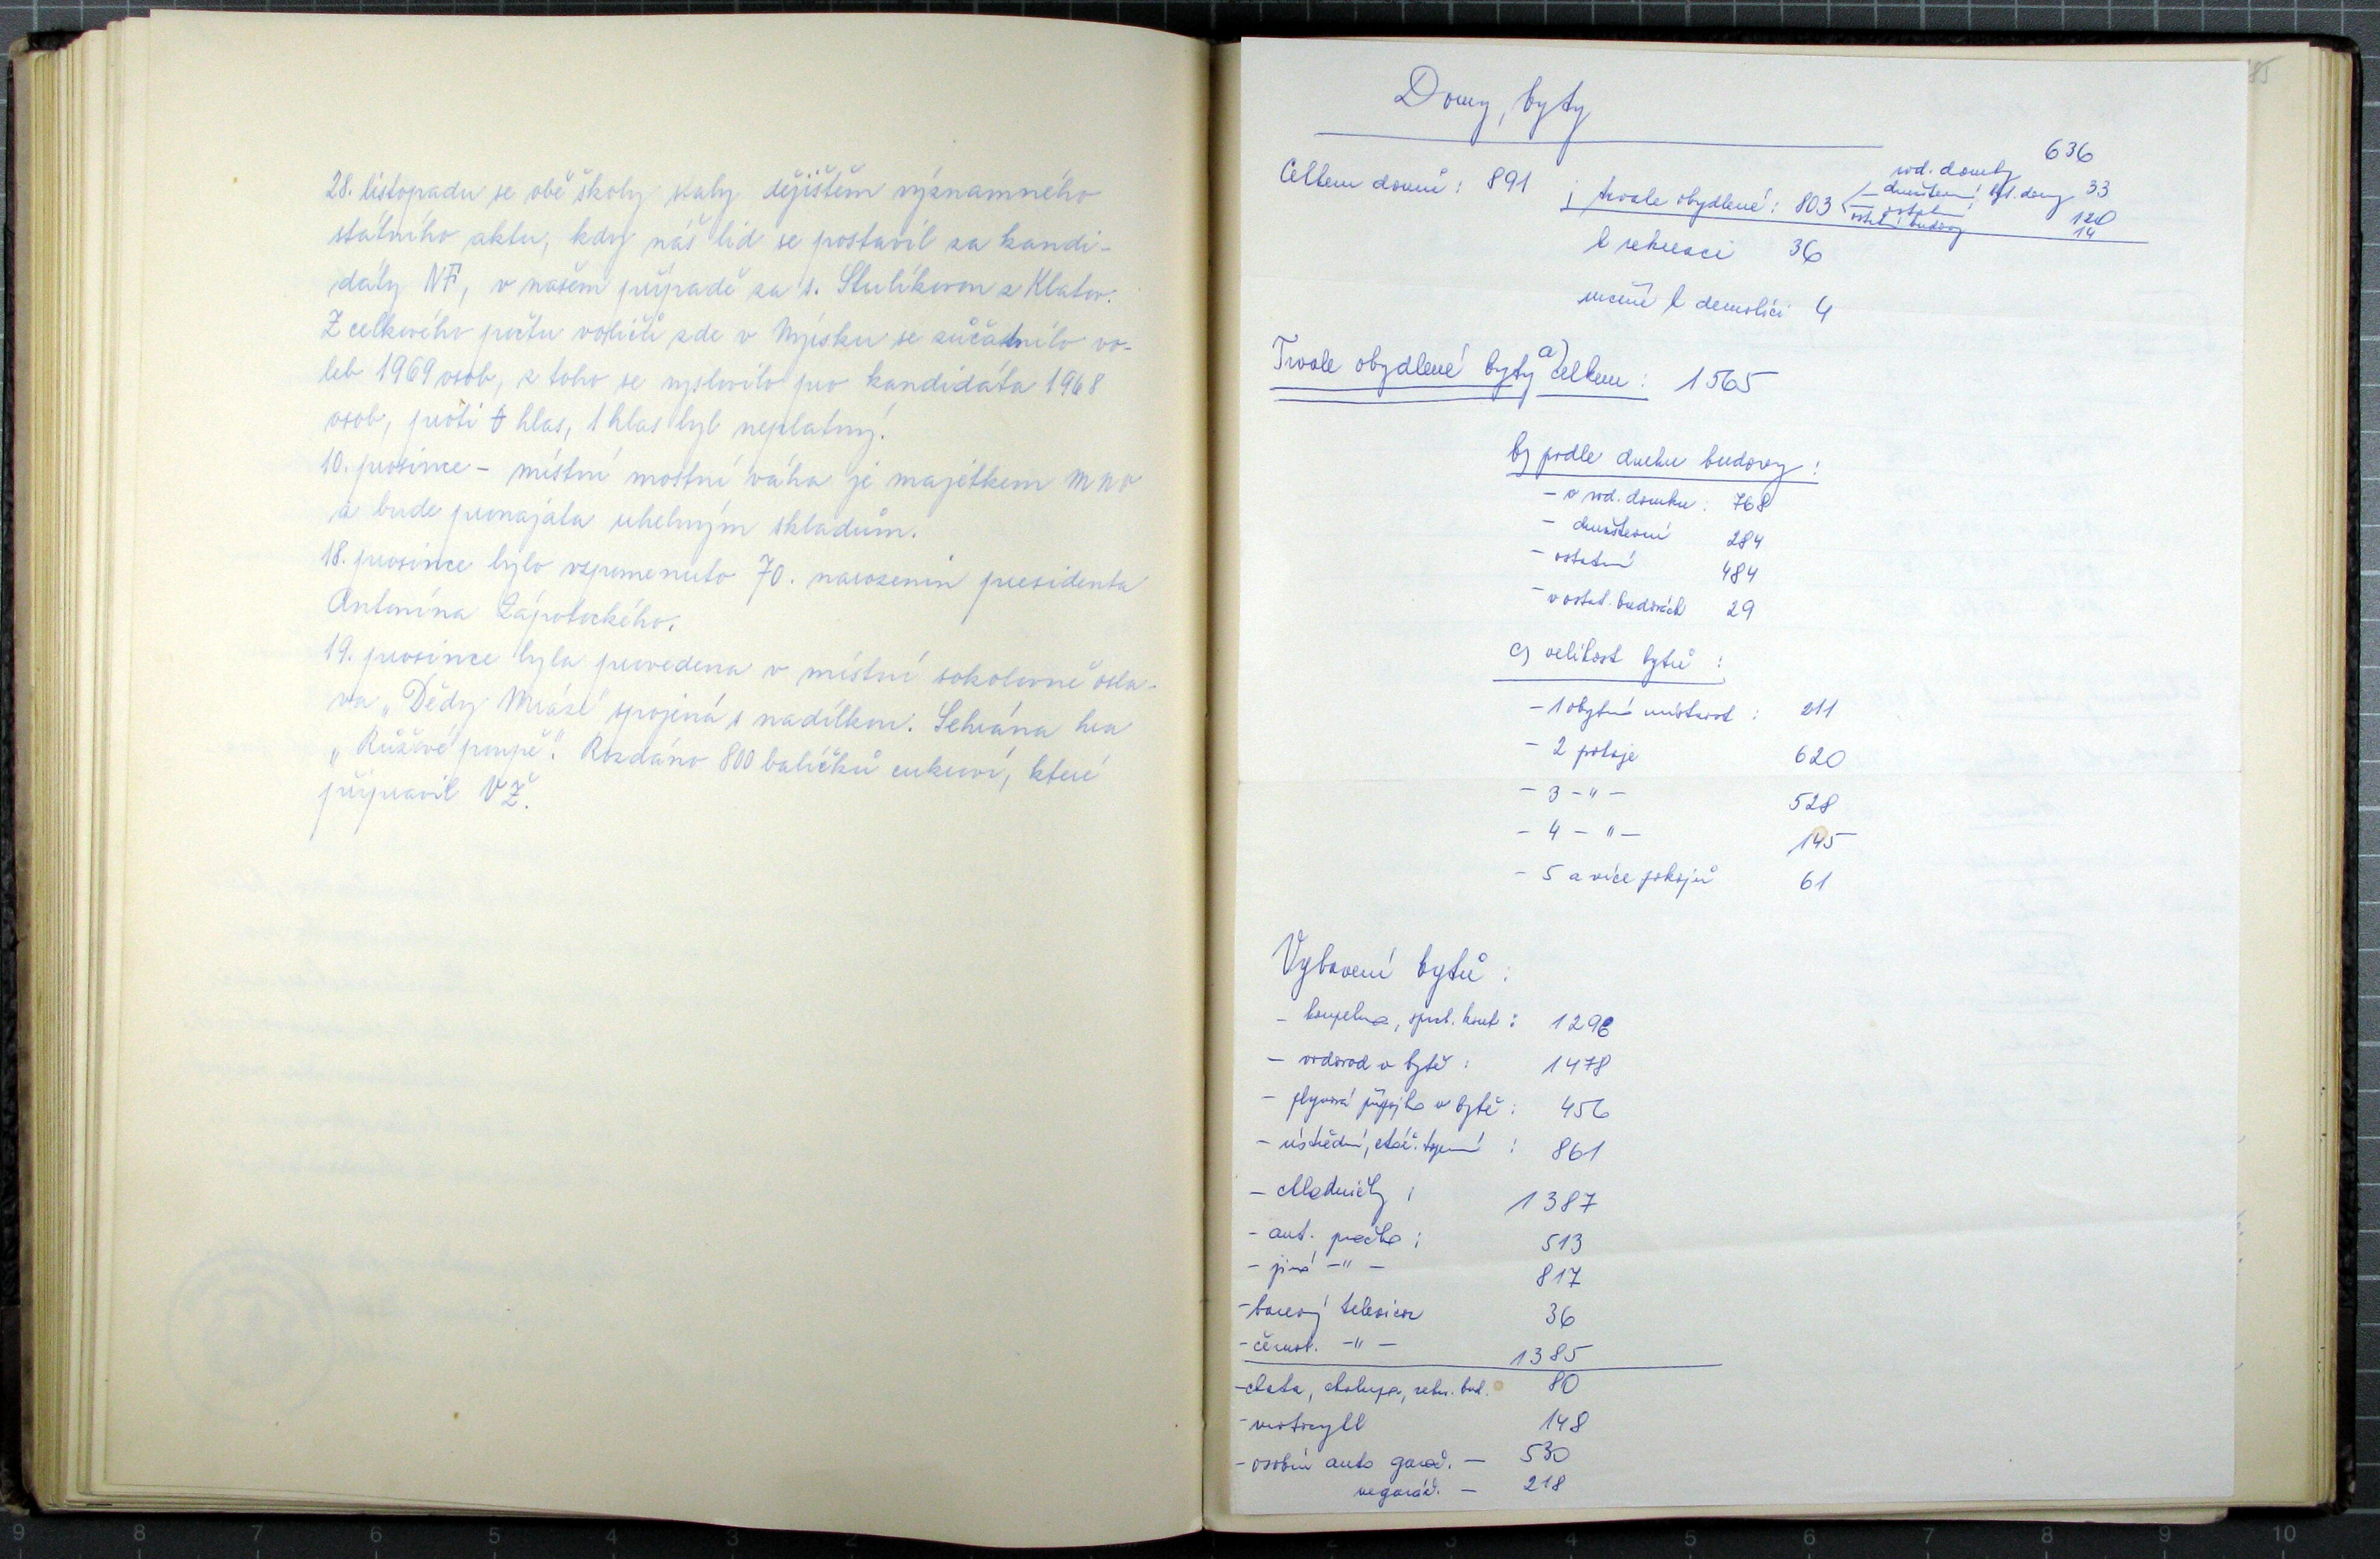 28. listopadu se obě školy staly dějištěm významného
státního aktu, kdy náš lid se postavil za kandi-
dáty NF, v našem případě za s. Stulíkovou z Klatov.
Z celkového počtu voličů zde v Nýrsku se zúčastnilo vo-
leb 1969 osob, z toho se vyslovilo pro kandidáta 1968
osob, proti hlas, 1 hlas byl neplatný.
10. prosince – místní mostní váha je majetkem MNV
a bude pronajata uhelným skladům.
18. prosince bylo vzpomenuto 70. narozenin presidenta
Antonína Zápotockého.
19. prosince byla provedena v místní sokolovně osla-
va „Dědy Mráze" spojená s nadílkou. Sehrána hra
„Růžové poupě". Rozdáno 800 balíčků cukroví, které
připravil VŽ.
85
Domy, byty
Celkem domů: 891
trvale obydlené: 803
rod. domky 636
družstevní byt. domy 33
ostatní 120
ostatní budovy 14
k rekreaci 36
určené k demolici 4
Trvale obydlené byty a) celkem: 1565
b) podle druhu budovy:
- v rod. domku: 768
- družstevní 284
- ostatní 484
- v ostat. budovách 29
c) velikost bytů:
- 1 obytná místnost: 211
- 2 pokoje 620
- 3 - " - 528
- 4 - " - 145
- 5 a více pokojů 61
Vybavení bytů:
- koupelna, sprch. kout: 1296
- vodovod v bytě: 1478
- plynová přípojka v bytě: 456
- ústřední, etáž. topení: 861
- chladničky: 1387
- aut. pračka: 513
- jiná - " - 817
- barevný televizor 36
- černob. - " - 1385
- chata, chalupa, rekr. bud. 80
- motocykl 148
- osobní auto garáž. - 530
negaráž. - 218